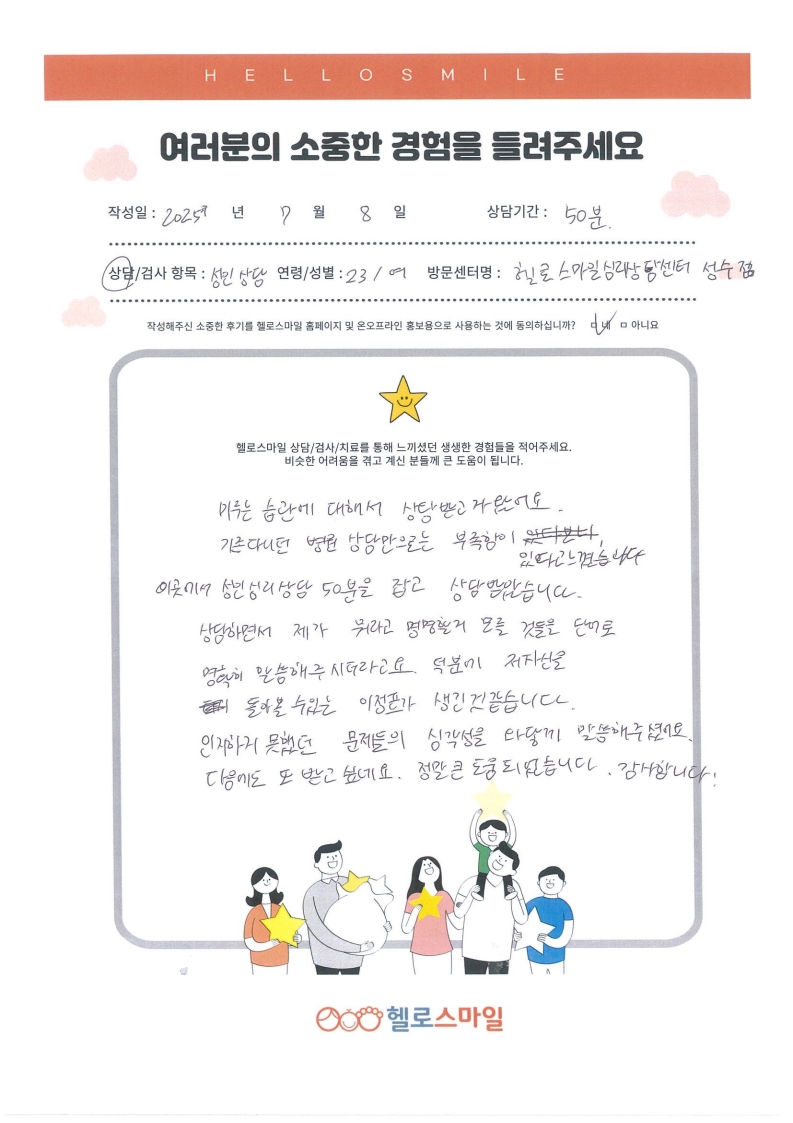 HELLOSMILE
여러분의 소중한 경험을 들려주세요
작성일 : 2025년 년 7 월 8 일 상담기간 : 50분.
상담/검사 항목 : 성인상담 연령/성별 : 23 / 여 방문센터명 : 헬로스마일심리상담센터 성수점
작성해주신 소중한 후기를 헬로스마일 홈페이지 및 온오프라인 홍보용으로 사용하는 것에 동의하십니까? □ 네 □ 아니요
헬로스마일 상담/검사/치료를 통해 느끼셨던 생생한 경험들을 적어주세요.
비슷한 어려움을 겪고 계신 분들께 큰 도움이 됩니다.
미루는 습관에 대해서 상담받고자 왔어요.
기존다니던 병원 상담만으로는 부족함이
있다고느꼈습니다
이곳에서 성인심리상담 50분을 잡고 상담받았습니다.
상담하면서 제가 뭐라고 명명할지 모를 것들을 단어로
명확히 말씀해주시더라고요. 덕분에 저자신을
돌아볼 수있는 이정표가 생긴것같습니다.
인지하지 못했던 문제들의 심각성을 와닿게 말씀해주셨어요.
다음에도 또 받고 싶네요. 정말 큰 도움 되었습니다. 감사합니다!
헬로스마일